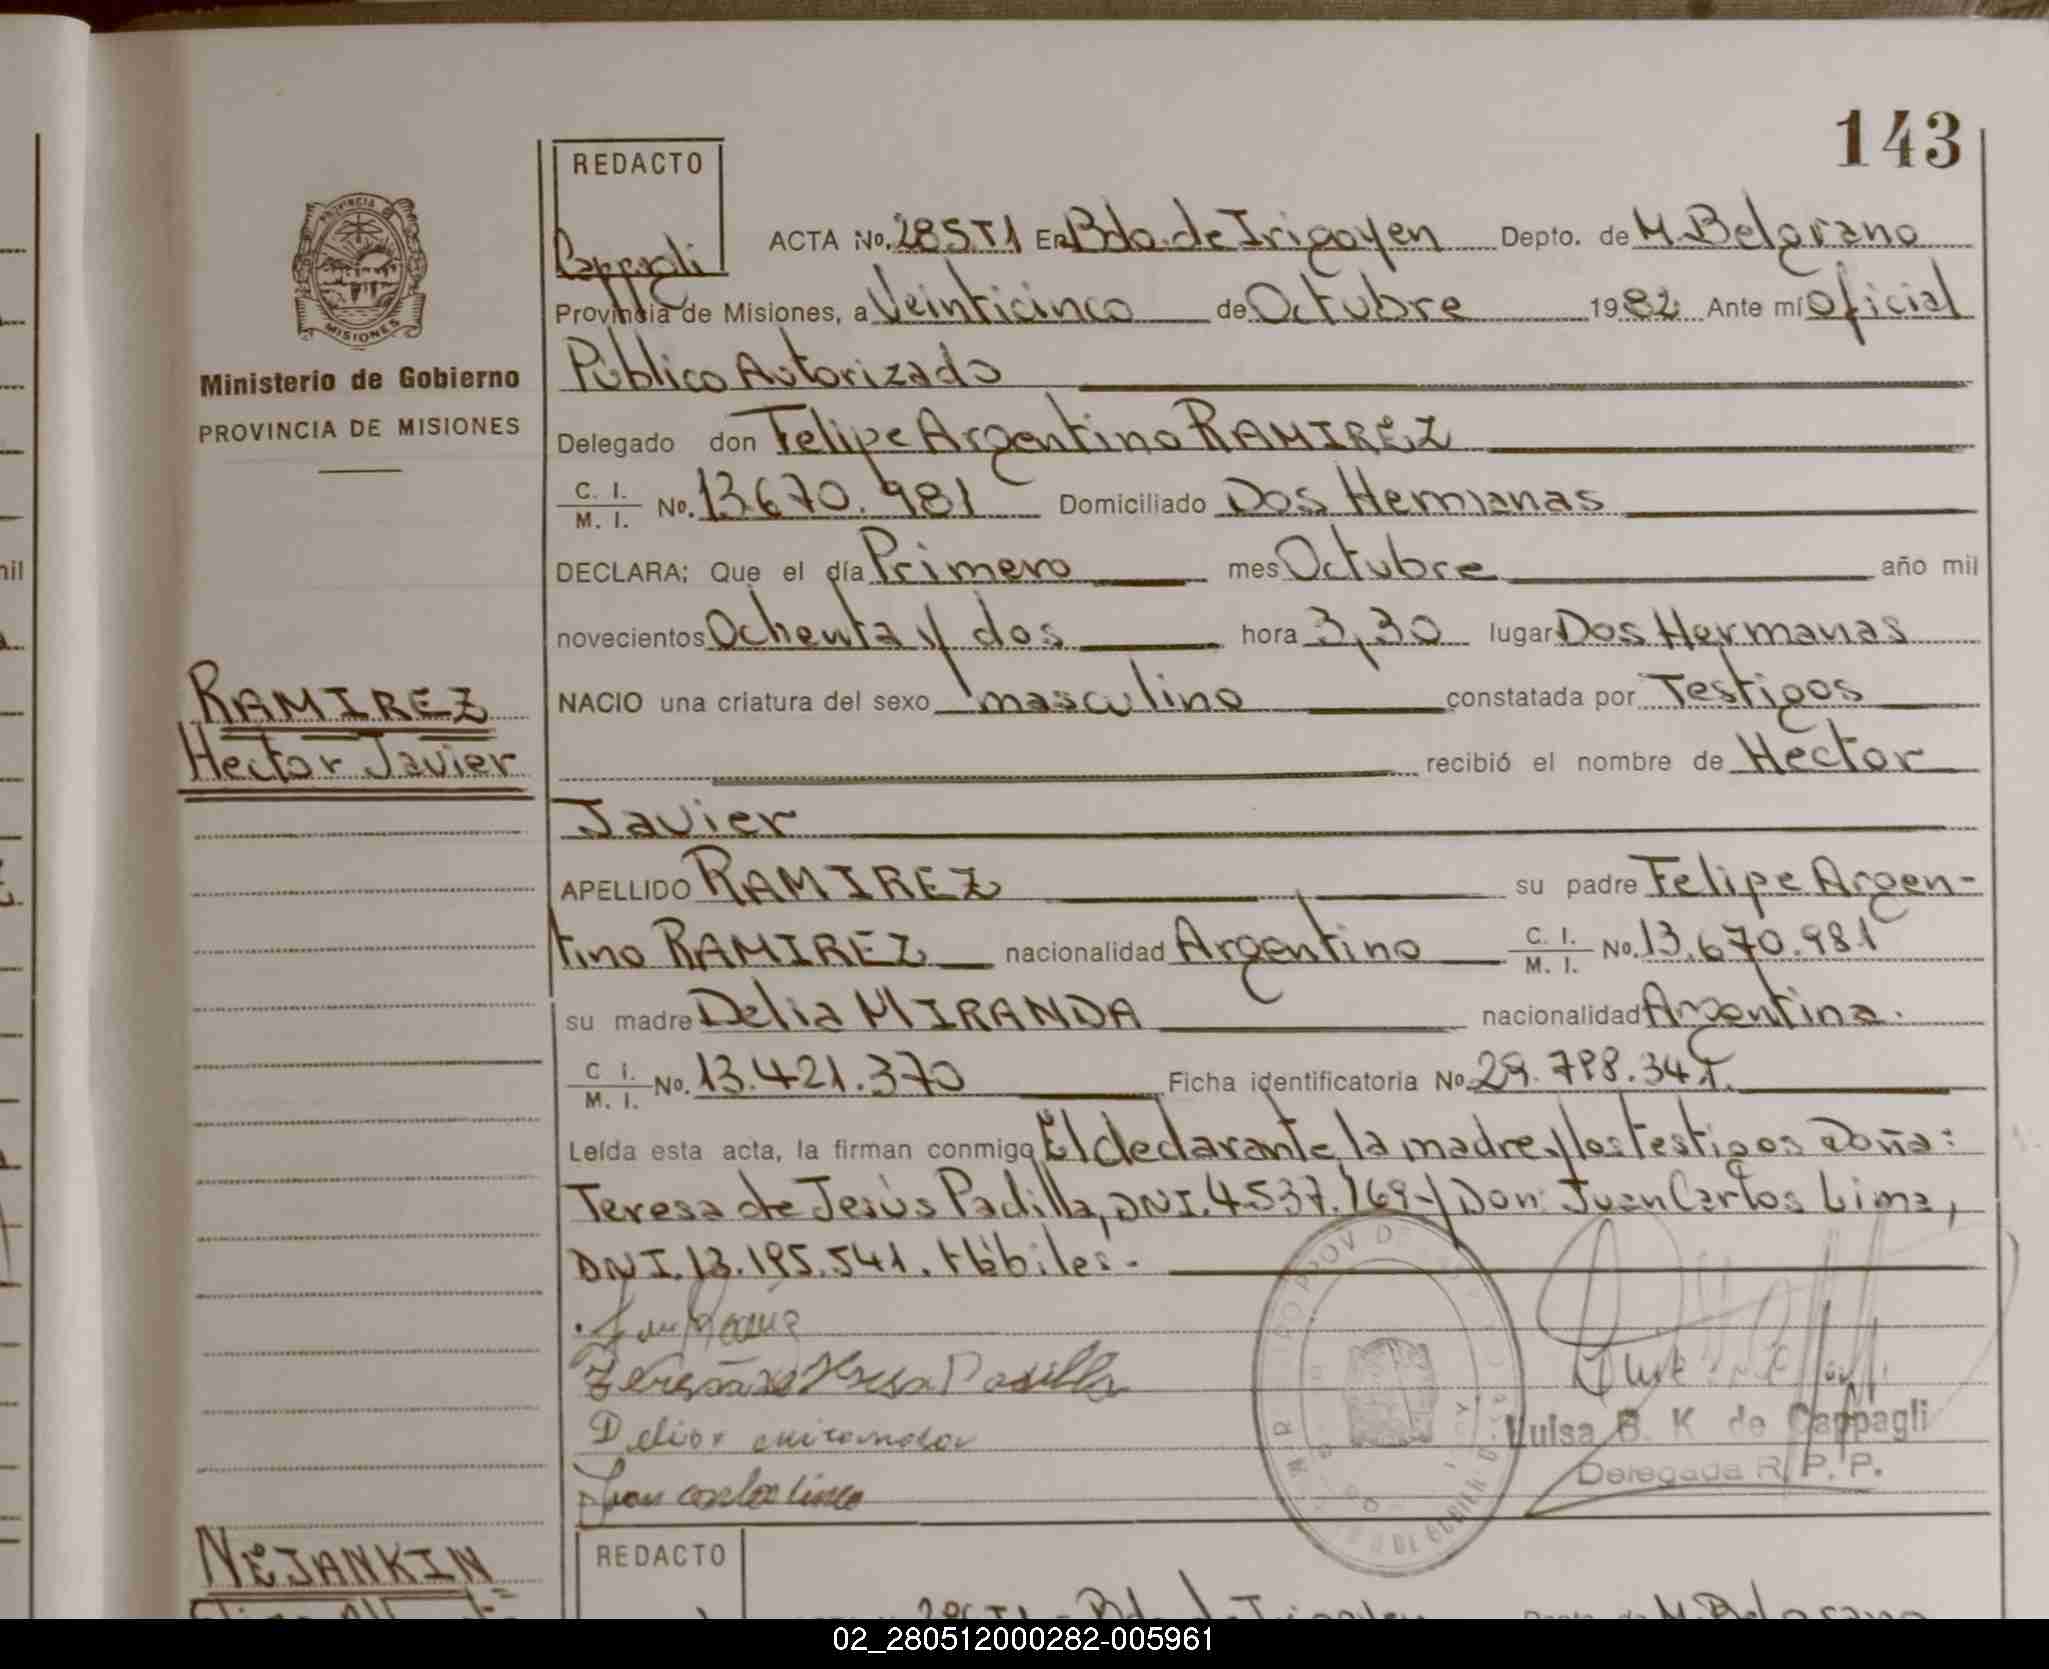 143
REDACTO
Cappagli
PROVINCIA D
MISIONES
Ministerio de Gobierno
PROVINCIA DE MISIONES
ACTA No. 285T1 En Bdo. de Irigoyen Depto. de M. Belgrano
Provincia de Misiones, a Veinticinco de Octubre 1982 Ante mí Oficial
Público Autorizado
Delegado don Felipe Argentino RAMIREZ
C. I. / M. I. No. 13670.981 Domiciliado Dos Hermanas
DECLARA: Que el día Primero mes Octubre año mil
novecientos Ochenta y dos hora 3,30 lugar Dos Hermanas
RAMIREZ
Hector Javier
NACIO una criatura del sexo masculino constatada por Testigos
recibió el nombre de Hector
Javier
APELLIDO RAMIREZ su padre Felipe Argen-
tino RAMIREZ nacionalidad Argentino C. I. / M. I. No. 13.670.981
su madre Delia MIRANDA nacionalidad Argentina.
C I. / M. I. No. 13.421.370 Ficha identificatoria No.
Leída esta acta, la firman conmigo El declarante, la madre y los testigos Doña:
Teresa de Jesús Padilla, DNI. 4.537.169 y Don: Juan Carlos Lima,
DNI. 13.195.541. Hábiles.-
Padilla
Delia miranda
Juan carlos lima
Luisa B. K de Cappagli
Delegada R. P. P.
NEJANKIN
REDACTO
02_280512000282-005961